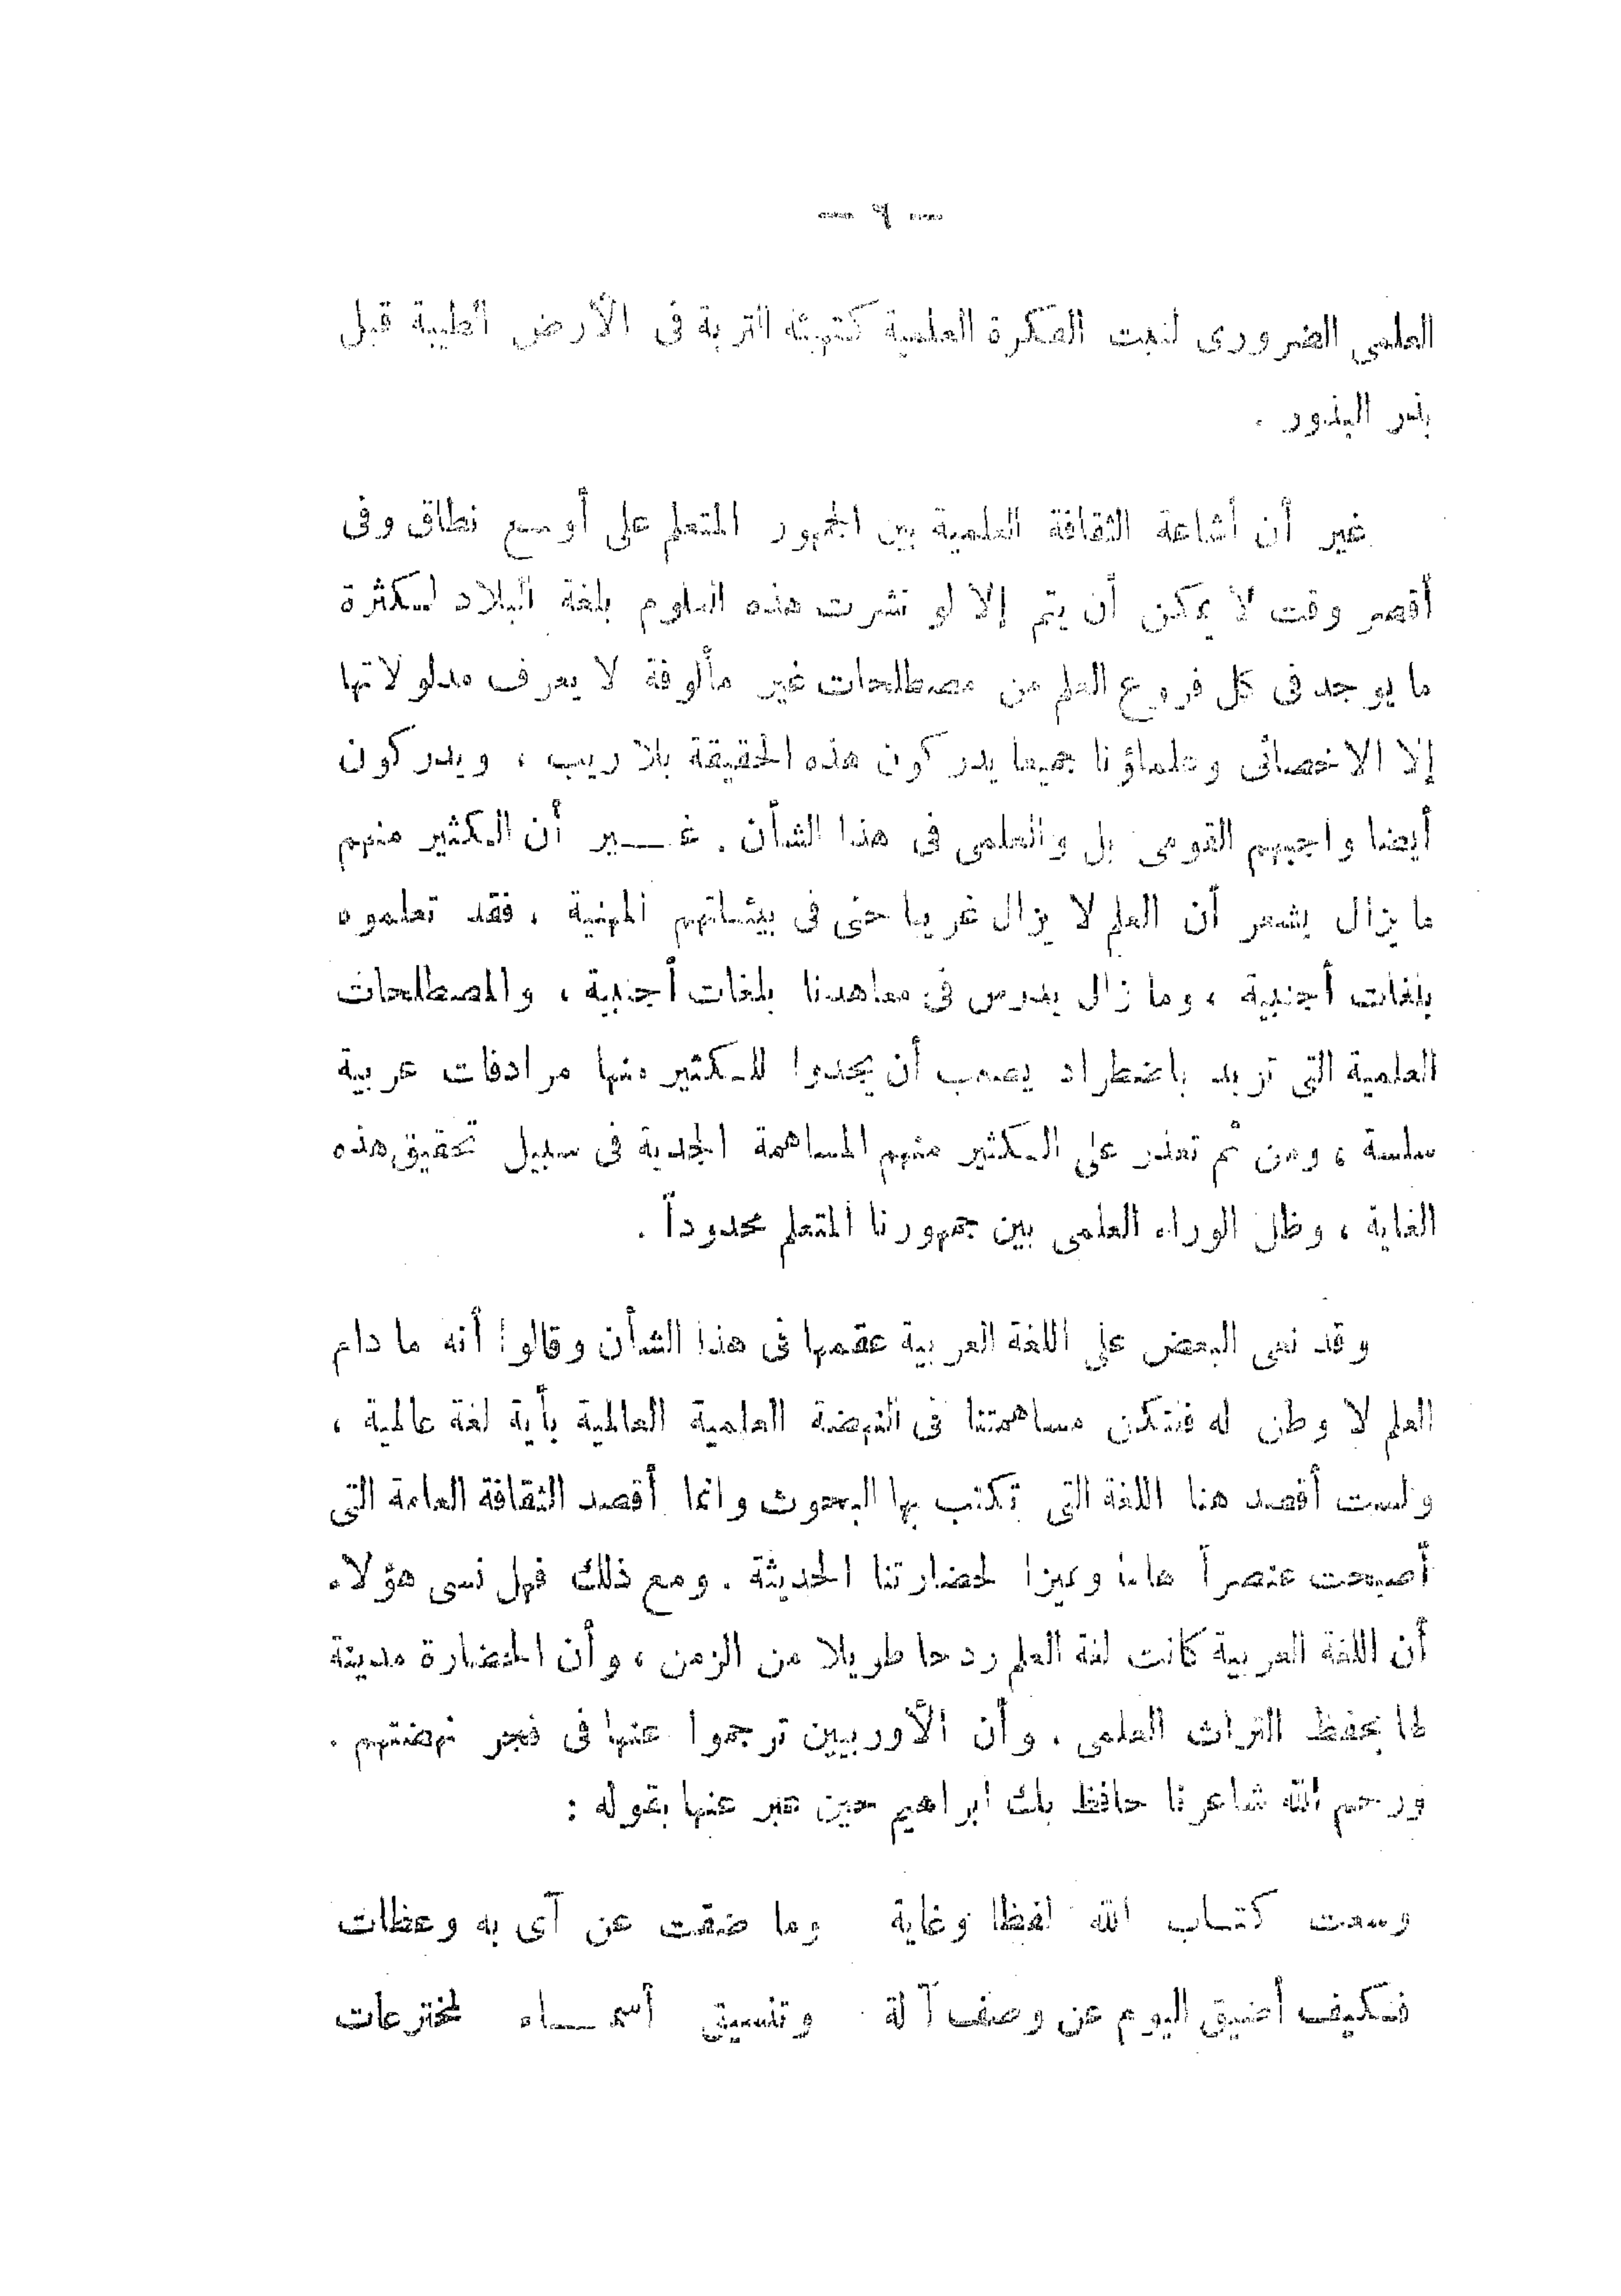 — ٣ —
العلمى الضرورى لنبت الفكرة العلمية كتهيئة التربة فى الأرض الطيبة قبل
بذر البذور .
غير أن أشاعة الثقافة العلمية بين الجمهور المتعلم على أوسع نطاق وفى
أقصر وقت لا يمكن أن يتم إلا لو نشرت هذه العلوم بلغة البلاد لكثرة
ما يوجد فى كل فروع العلم من مصطلحات غير مألوفة لا يعرف مدلولاتها
إلا الاخصائى وعلماؤنا جميعا يدركون هذه الحقيقة بلا ريب ، ويدركون
أيضا واجبهم القومى بل والعلمى فى هذا الشأن . غير أن الكثير منهم
ما يزال يشعر أن العلم لا يزال غريبا حتى فى بيئاتهم المهنية ، فقد تعلموه
بلغات أجنبية ، وما زال يدرس فى معاهدنا بلغات أجنبية ، والمصطلحات
العلمية التى تزيد باضطراد يصعب أن يجدوا للكثير منها مرادفات عربية
سلسة ، ومن ثم تعذر على الكثير منهم المساهمة الجدية فى سبيل تحقيق هذه
الغاية ، وظل الوراء العلمى بين جمهورنا المتعلم محدوداً .
وقد نعى البعض على اللغة العربية عقمها فى هذا الشأن وقالوا أنه ما دام
العلم لا وطن له فلتكن مساهمتنا فى النهضة العلمية العالمية بأية لغة عالمية ،
ولست أقصد هنا اللغة التى تكتب بها البحوث وانما أقصد الثقافة العامة التى
أصبحت عنصراً هاما ومميزا لحضارتنا الحديثة . ومع ذلك فهل نسى هؤلاء
أن اللغة العربية كانت لغة العلم ردحا طويلا من الزمن ، وأن الحضارة مدينة
لها بحفظ التراث العلمى ، وأن الأوربيين ترجموا عنها فى فجر نهضتهم .
ورحم الله شاعرنا حافظ بك ابراهيم حين عبر عنها بقوله :
وسعت كتاب الله لفظا وغاية وما ضقت عن آى به وعظات
فكيف أضيق اليوم عن وصف آلة وتنسيق أسماء لمخترعات